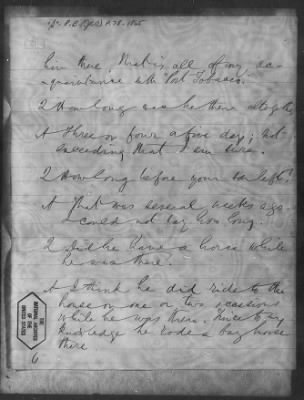 him there. That is all of my ac-
quaintance with "Port Tobacco".
Q How long was he there altogether
A Three or four or five days; not
exceeding that I am sure.
Q How long before your son left?
A That was several weeks ago
I could not say how long.
Q Did he have a horse while
he was there?
A I think he did ride to the
house on one or two occasions
while he was there.
knowledge he rode a bay horse
there
THE NATIONAL ARCHIVES OF THE UNITED STATES
6